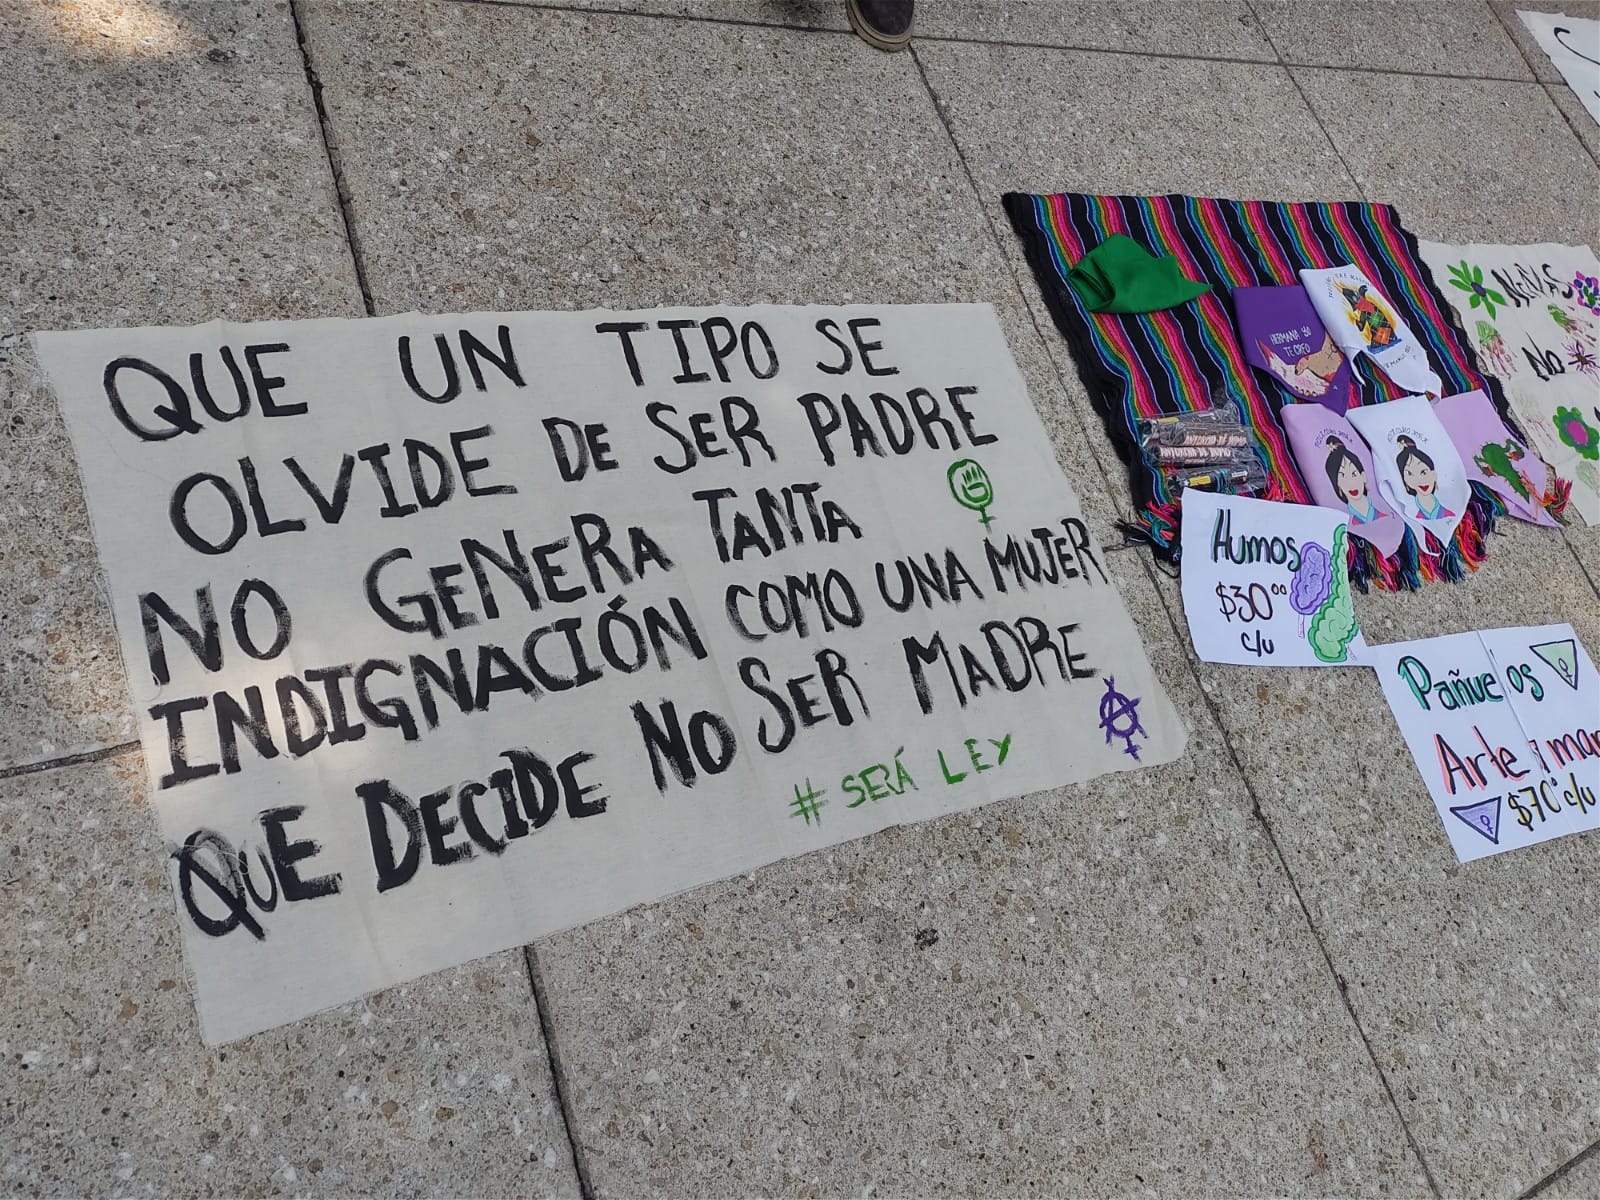 QUE UN TIPO SE
OLVIDE DE SER PADRE
NO GENERA TANTA
INDIGNACIÓN COMO UNA MUJER
QUE DECIDE NO SER MADRE
# SERÁ LEY
HERMANA YO
TE CREO
ANTORCHA DE HUMO
Humos
$30.00
c/u
Pañuelos
$70 c/u
NiÑAS
No